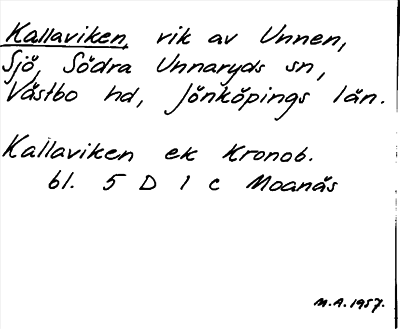 Kallaviken, vik av Unnen,
Sjö, Södra Unnaryds sn,
Västbo hd, Jönköpings län.
Kallaviken ek Kronob.
bl. 5 D 1 c Moanäs
M.A. 1957.